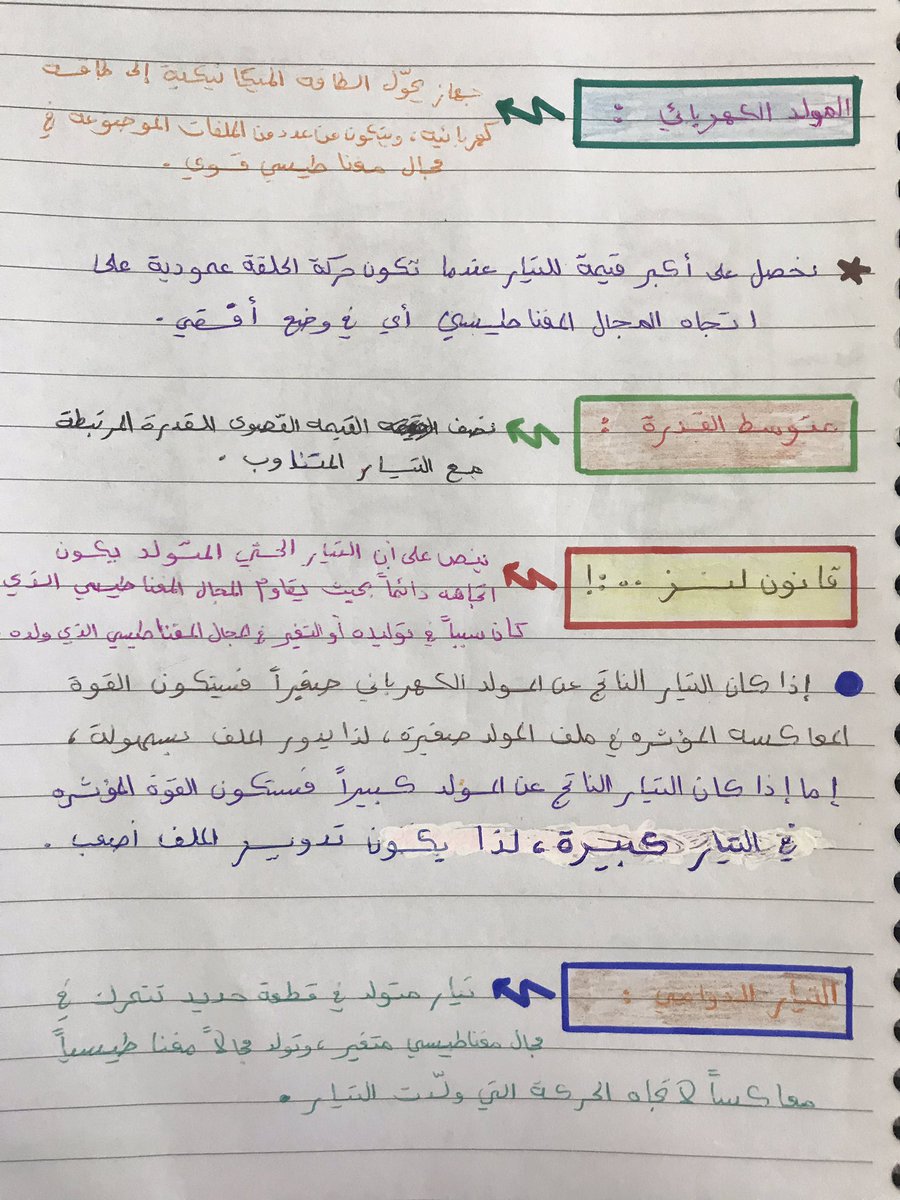 المولد الكهربائي :
جهاز يحوّل الطاقة الميكانيكية إلى طاقة
كهربائية، ويتكون من عدد من الملفات الموضوعة في
مجال مغناطيسي قوي .
نحصل على أكبر قيمة للتيار عندما تكون حركة الحلقة عمودية على
اتجاه المجال المغناطيسي أي في وضع أفقي .
متوسط القدرة :
نصف القيمه القصوى للقدرة المرتبطة
مع التيار المتناوب .
قانون لنز ..:!
ينص على أن التيار الحثي المتولد يكون
اتجاهه دائماً بحيث يقاوم المجال المغناطيسي الذي
كان سبباً في توليده أو التغير في المجال المغناطيسي الذي ولده .
إذا كان التيار الناتج عن المولد الكهرباني صغيراً فسيتكون القوة
المعاكسه المؤثره في ملف المولد صغيرة، لذا يدور الملف بسهولة،
إما إذا كان التيار الناتج عن المولد كبيراً فستكون القوة المؤثره
في التيار كبيرة، لذا يكون تدوير الملف أصعب .
التيار الدوامي :
تيار متولد في قطعة حديد تتحرك في
مجال مغناطيسي متغير، وتولد مجالاً مغناطيسياً
معاكساً لاتجاه الحركة التي ولّدت التيار .